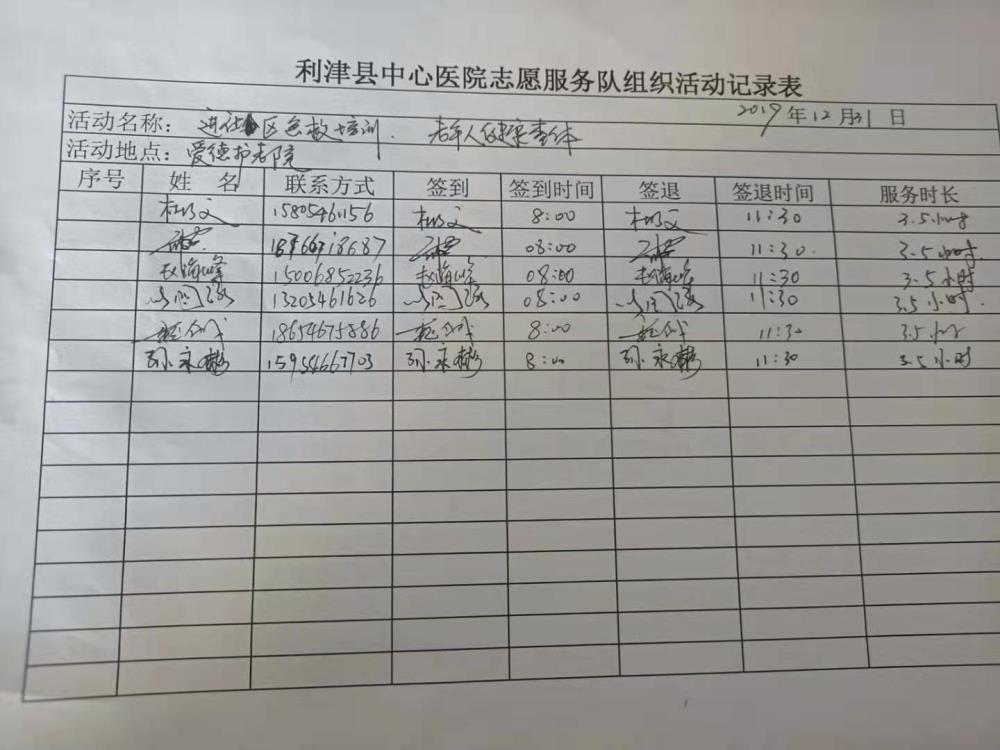 利津县中心医院志愿服务队组织活动记录表
2019年12月31日
活动名称：进社区急救培训、老年人健康查体
活动地点：爱德护老院
序号 姓 名 联系方式 签到 签到时间 签退 签退时间 服务时长
8:00 11:30 3.5小时
08:00 11:30. 3.5小时
赵海峰 15006852236 赵海峰 08:00 赵海峰 11:30 3.5小时
13203461626 08:00 11:30 3.5小时
18654675886 8:00 11:30 3.5小时
孙永彬 15954667703 孙永彬 8:00 孙永彬 11:30 3.5小时